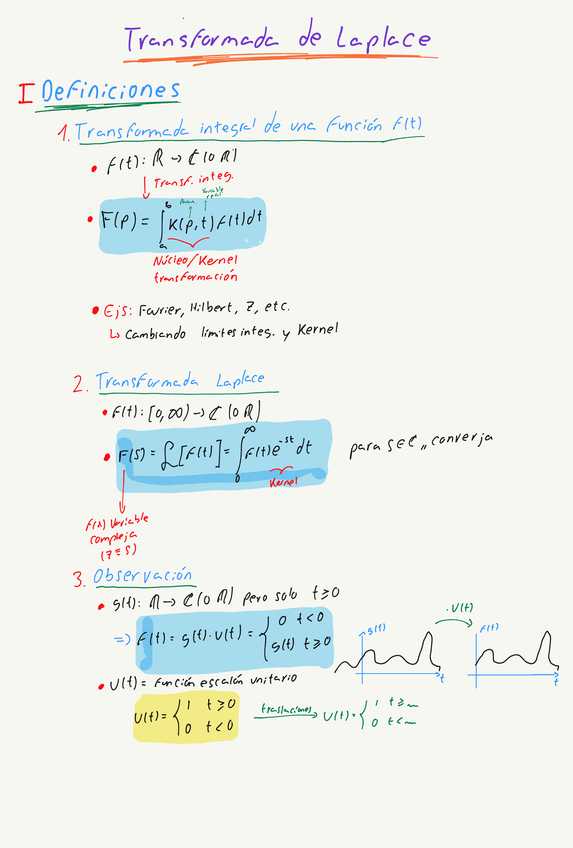 Transformada de Laplace
I Definiciones
1. Transformada integral de una función f(t)
• f(t): ℝ → ℂ (o ℝ)
↓ Transf. integ.
Variable real
• F(p) = ∫_a^b K(p,t) f(t) dt
Núcleo/Kernel
transformación
• Ejs: Fourier, Hilbert, Z, etc.
↳ Cambiando límites integ. y Kernel
2. Transformada Laplace
• f(t): [0,∞) → ℂ (o ℝ)
• F(s) = ℒ[f(t)] = ∫_0^∞ f(t)e^{-st} dt para s∈ℂ,, converja
Kernel
Variable
compleja
(z ≡ s)
3. Observación
• g(t): ℝ → ℂ (o ℝ) pero solo t ≥ 0
⇒ f(t) = g(t)·U(t) = { 0 t<0
g(t) t ≥ 0
g(t) ·U(t) f(t)
t t
• U(t) = función escalón unitario
U(t) = { 1 t ≥ 0 traslaciones → U(t) = { 1 t ≥ m
0 t < 0 0 t < m